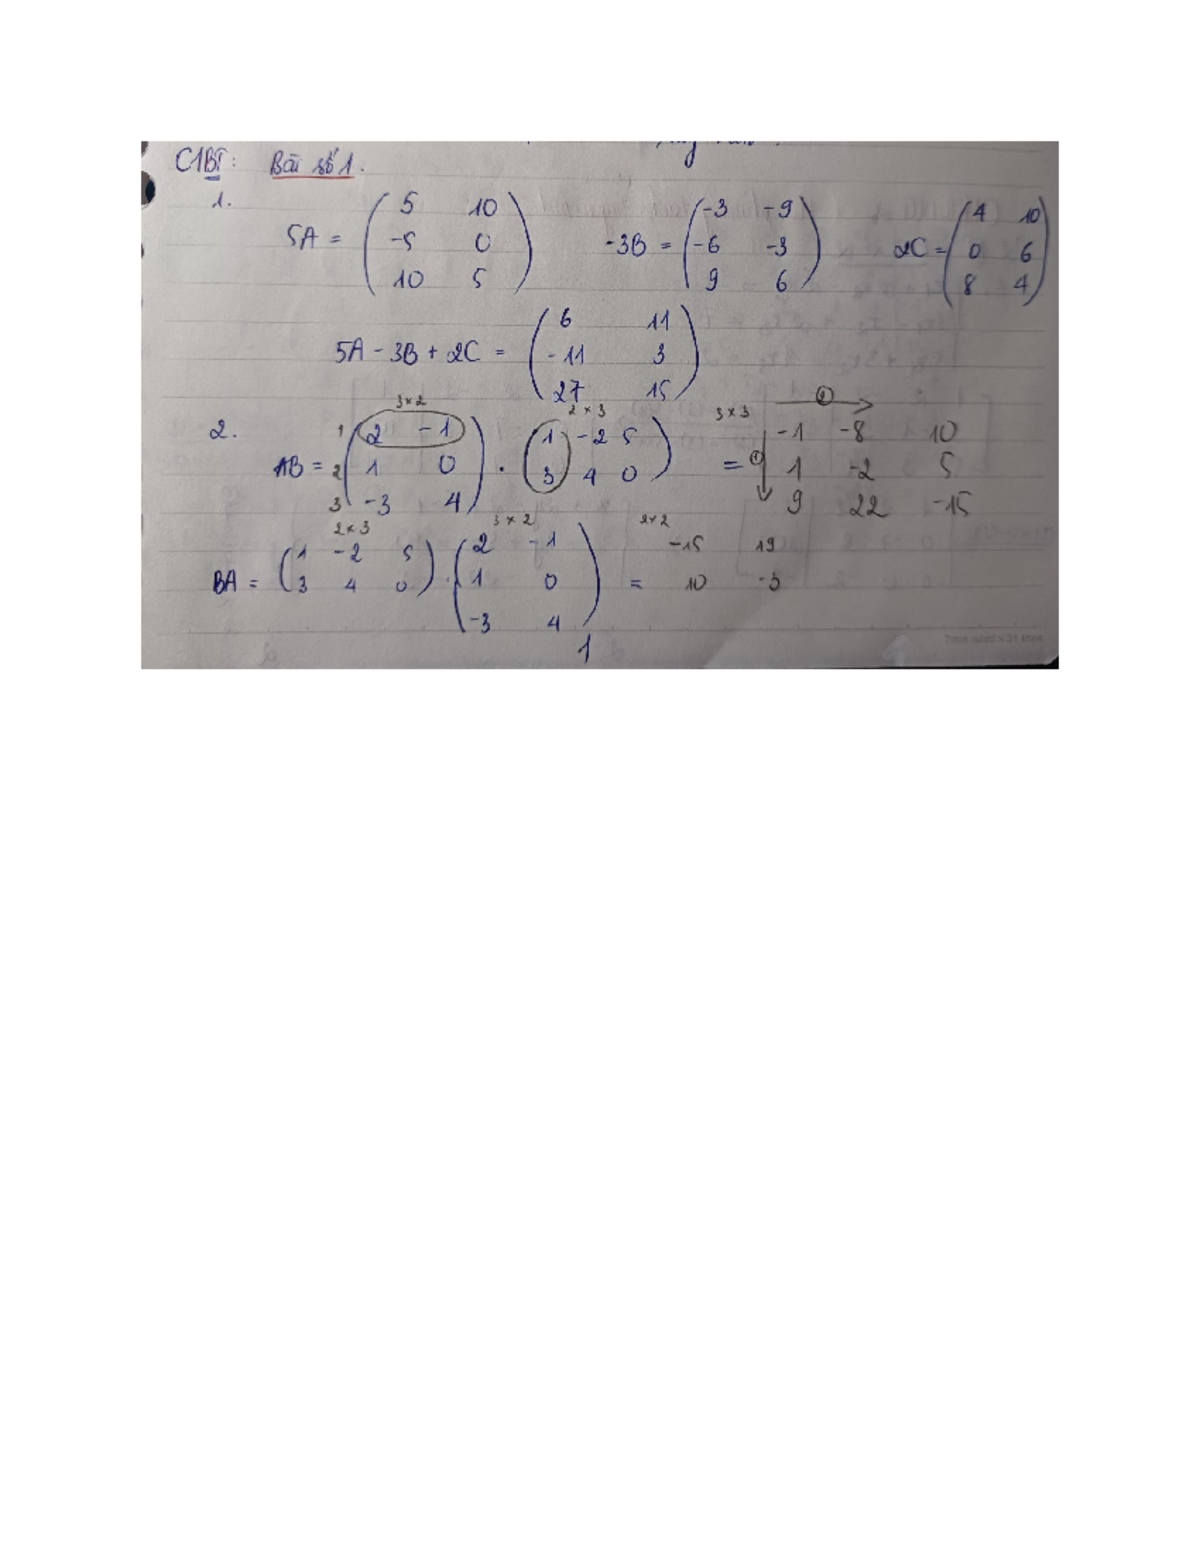 C1BT: Bài số 1.
1.
5A = ( 5 10 ; -5 0 ; 10 5 ) -3B = ( -3 -9 ; -6 -3 ; 9 6 ) 2C = ( 4 10 ; 0 6 ; 8 4 )
5A - 3B + 2C = ( 6 11 ; -11 3 ; 27 15 )
3×2 2×3 3×3 ②
2. AB = 1 2 3 ( 2 -1 ; 1 0 ; -3 4 ) . ( 1 -2 5 ; 3 4 0 ) = ① -1 -8 10 ; 1 -2 5 ; 9 22 -15
2×3 3×2 2×2
BA = ( 1 -2 5 ; 3 4 0 ) . ( 2 -1 ; 1 0 ; -3 4 ) = -15 19 ; 10 -3
1
7mm ruled × 31 lines